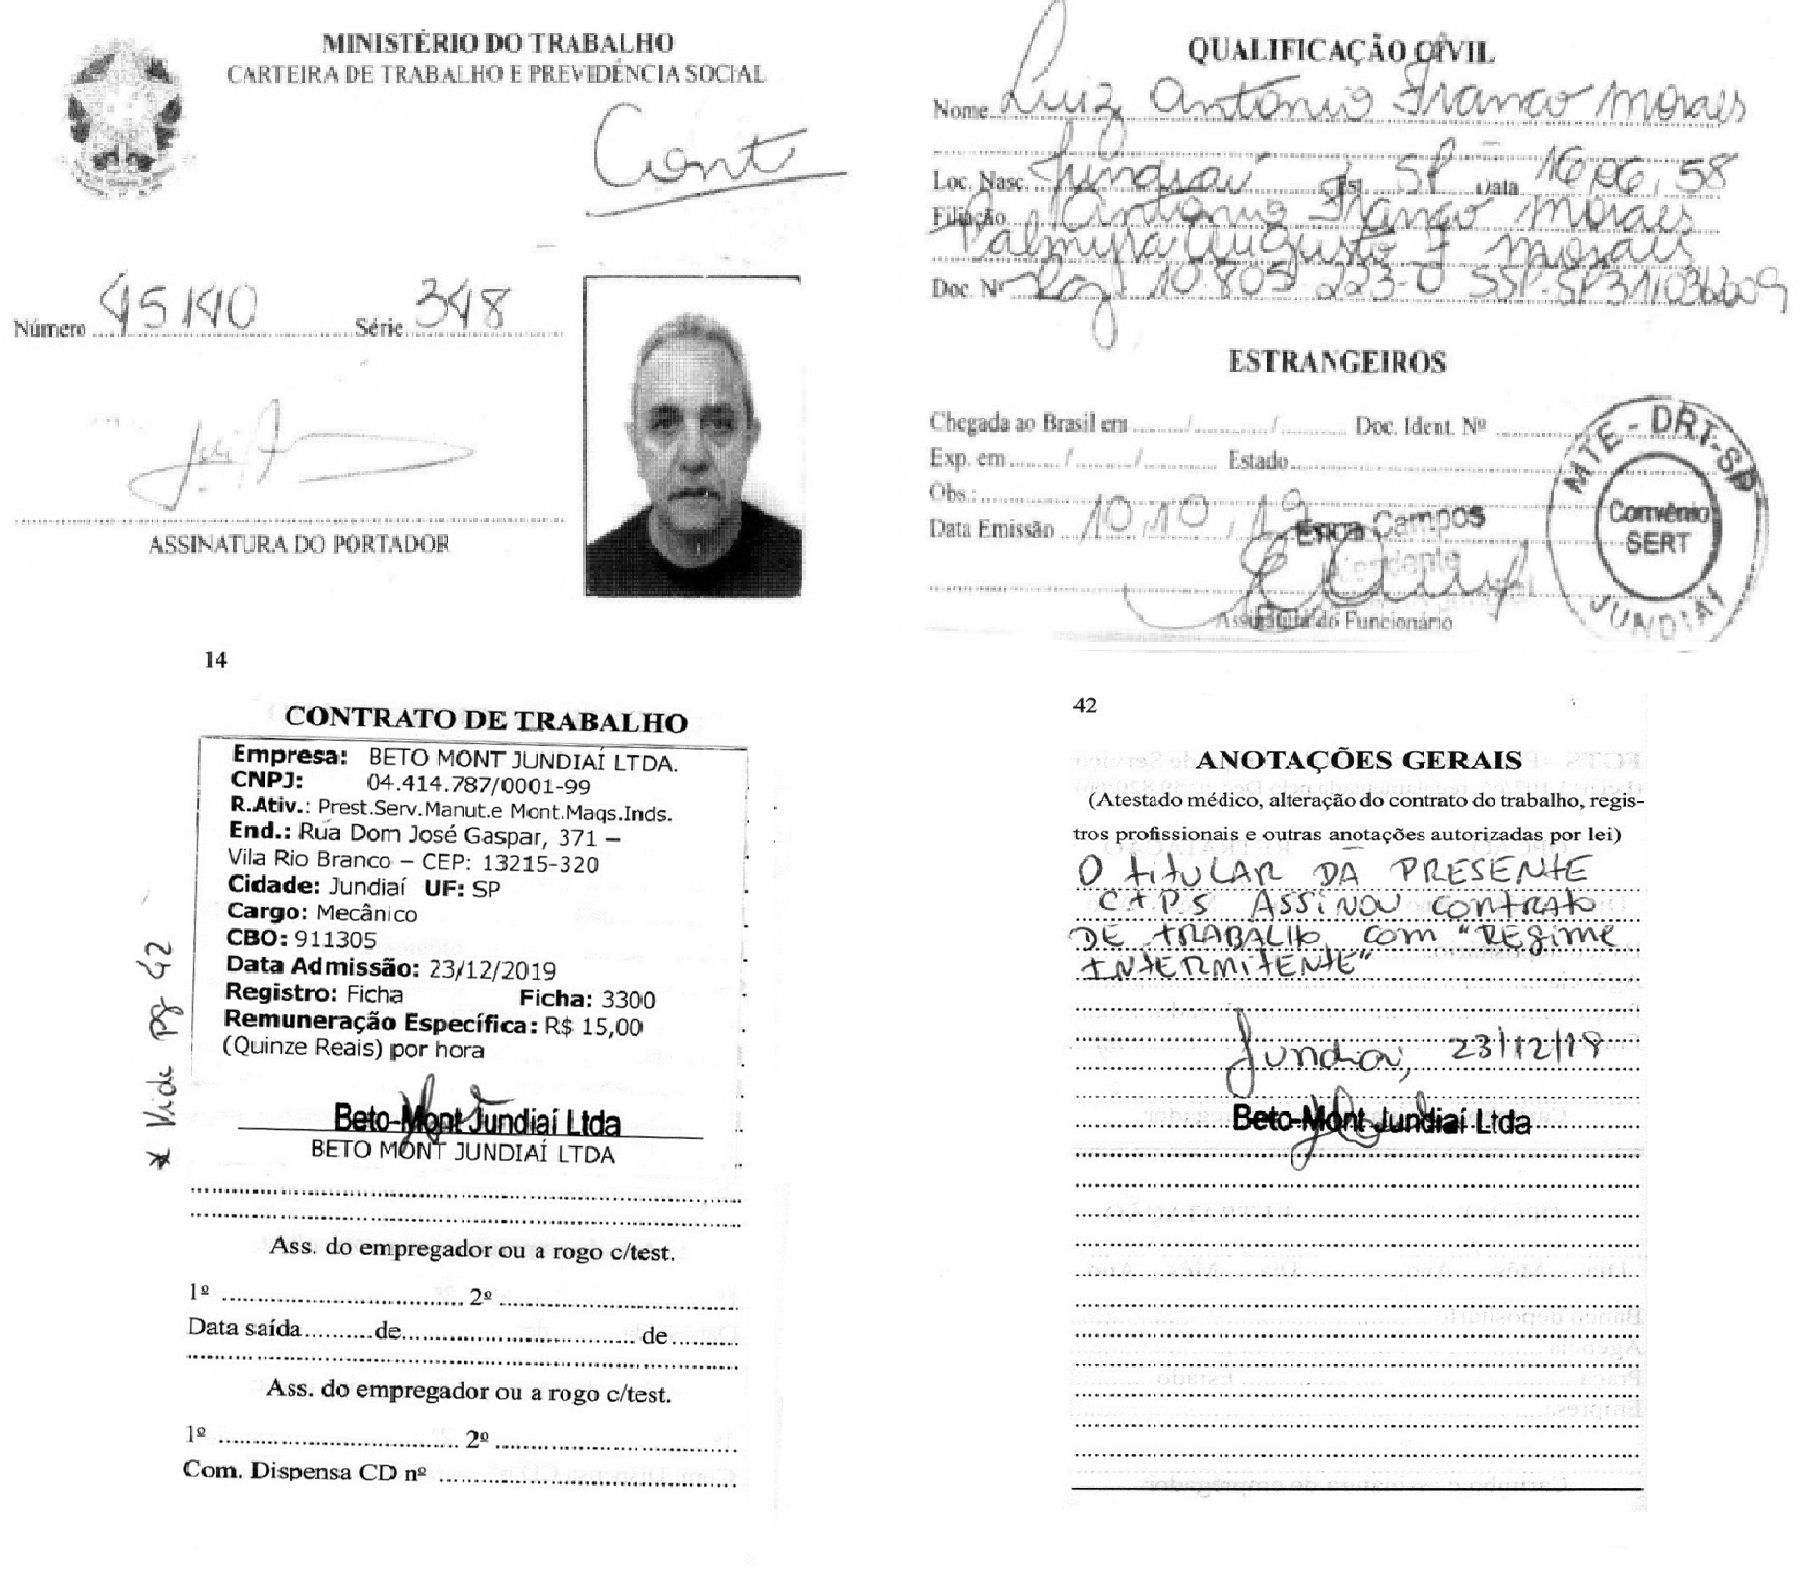 MINISTÉRIO DO TRABALHO
CARTEIRA DE TRABALHO E PREVIDÊNCIA SOCIAL
Cont
Número 45140 Série 348
ASSINATURA DO PORTADOR
QUALIFICAÇÃO CIVIL
Nome Luiz Antonio Franco Moraes
Loc. Nasc. Jundiaí Est. SP Data 16.06.58
Filiação Antonio Franco Moraes
Palmyra Augusto F Morais
Doc. Nº Rg 10.805.223-0 SSP-SP
ESTRANGEIROS
Chegada ao Brasil em / / Doc. Ident. Nº
Exp. em / / Estado
Obs.:
Data Emissão 10.10.19
Erica Campos
Assinatura do Funcionário
MTE - DRT-SP
Convênio
SERT
JUNDIAÍ
14
CONTRATO DE TRABALHO
Empresa: BETO MONT JUNDIAÍ LTDA.
CNPJ: 04.414.787/0001-99
R.Ativ.: Prest.Serv.Manut.e Mont.Maqs.Inds.
End.: Rua Dom José Gaspar, 371 –
Vila Rio Branco – CEP: 13215-320
Cidade: Jundiaí UF: SP
Cargo: Mecânico
CBO: 911305
Data Admissão: 23/12/2019
Registro: Ficha Ficha: 3300
Remuneração Específica: R$ 15,00
(Quinze Reais) por hora
Beto-Mont Jundiaí Ltda
BETO MONT JUNDIAÍ LTDA
* Vide pg 42
Ass. do empregador ou a rogo c/test.
1º 2º
Data saída de de
Ass. do empregador ou a rogo c/test.
1º 2º
Com. Dispensa CD nº
42
ANOTAÇÕES GERAIS
(Atestado médico, alteração do contrato do trabalho, regis-
tros profissionais e outras anotações autorizadas por lei)
O TITULAR DA PRESENTE
CTPS ASSINOU CONTRATO
DE TRABALHO COM "REGIME
INTERMITENTE"
Jundiaí, 23/12/19
Beto-Mont Jundiaí Ltda